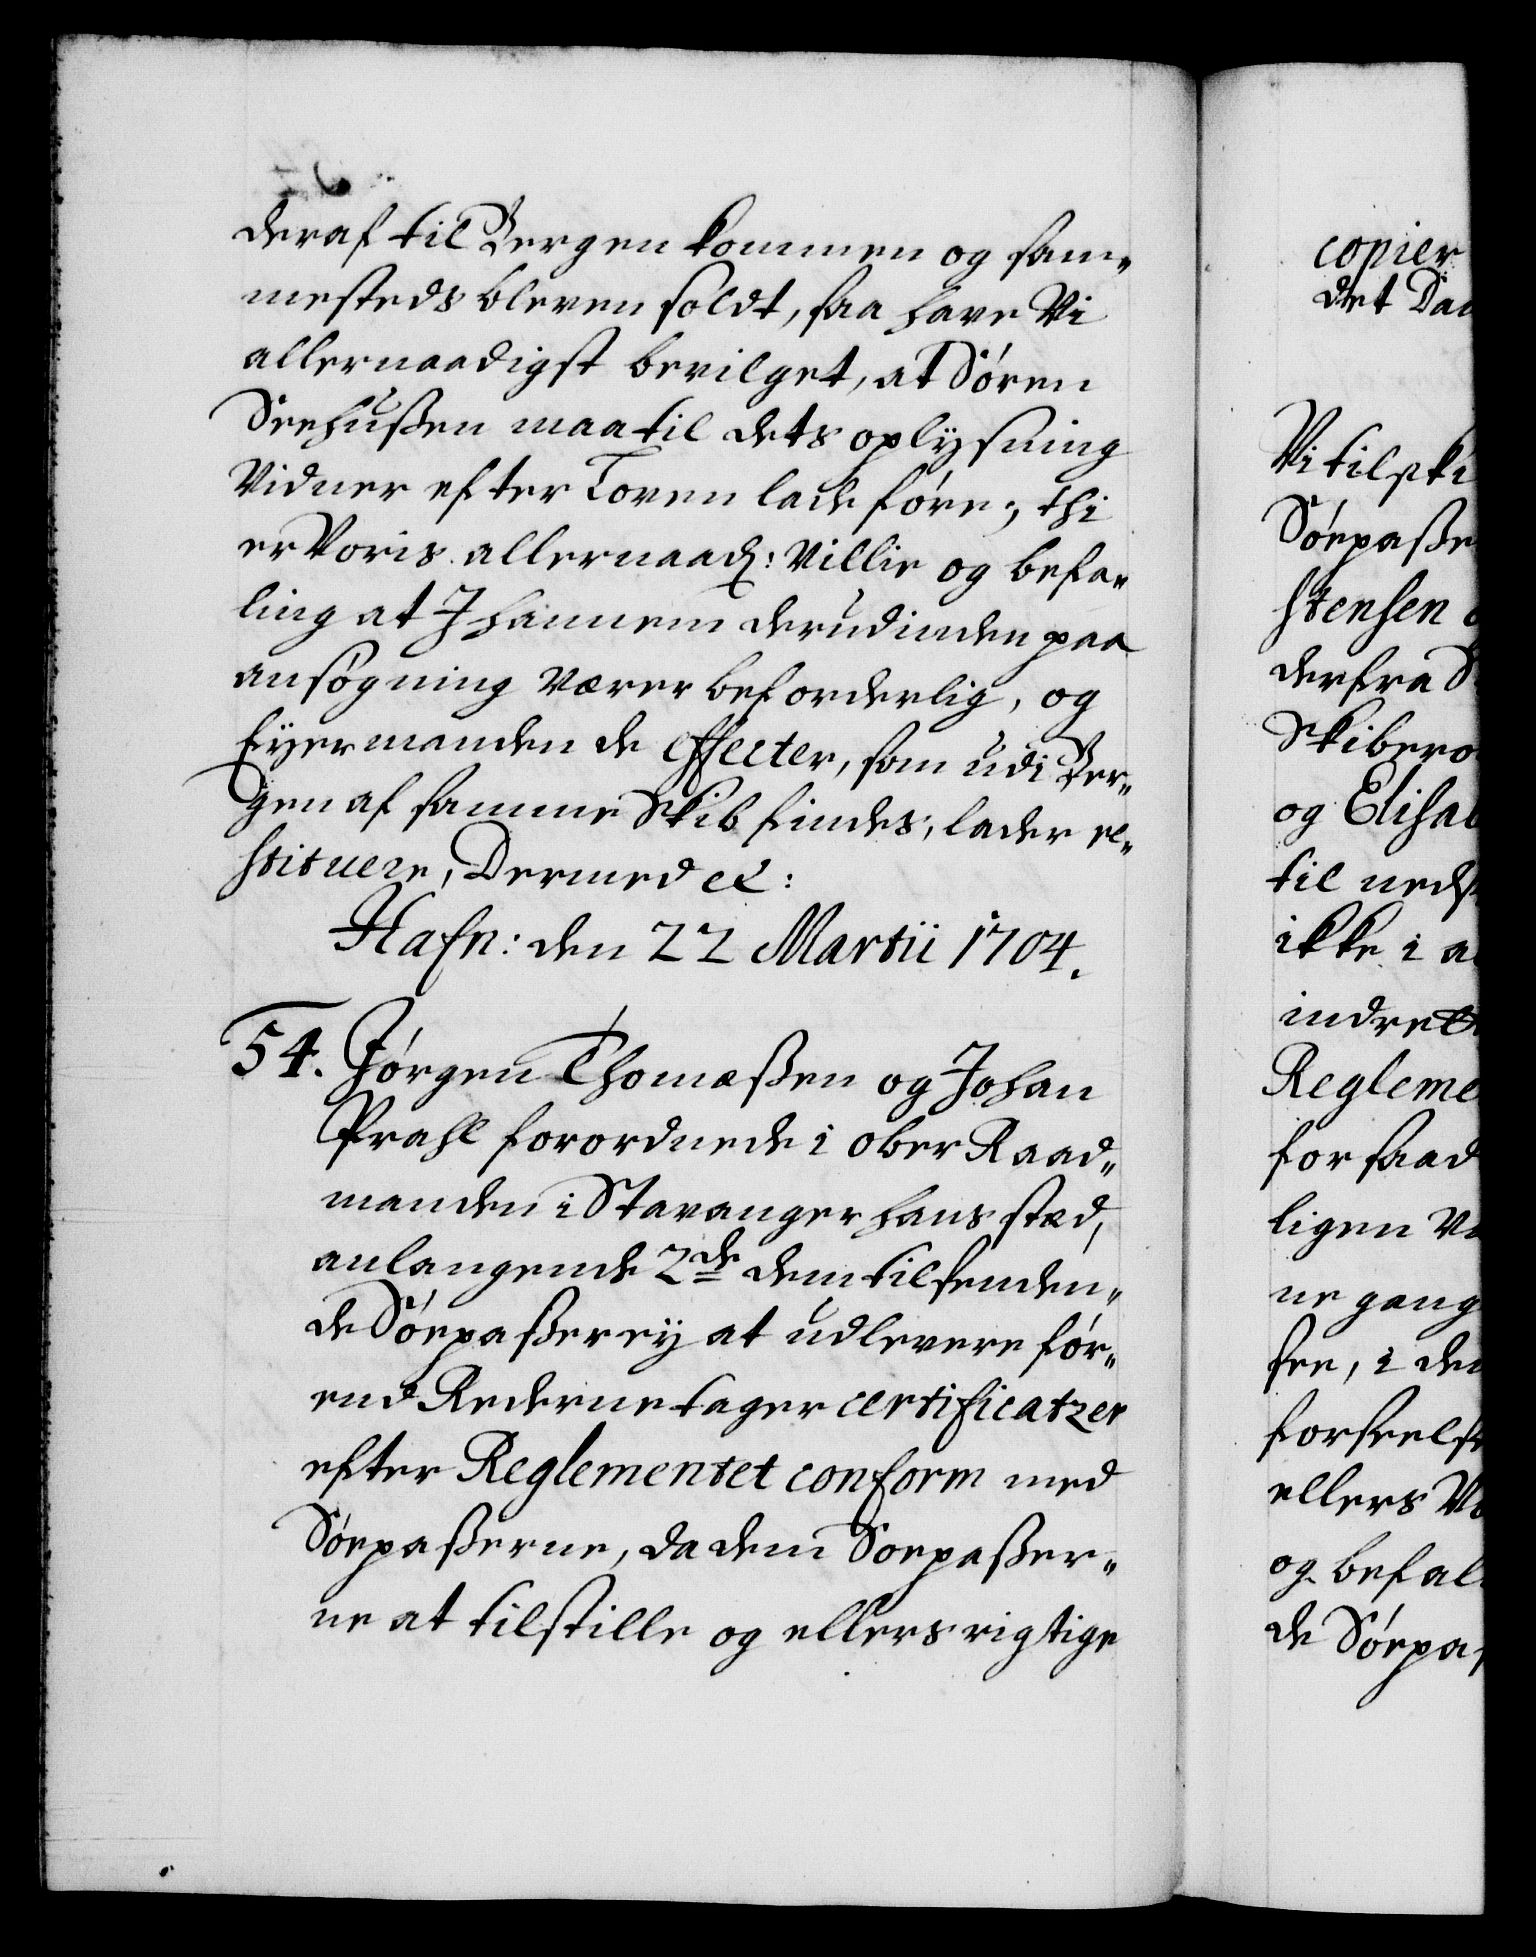 deraf til Bergen kommen og sam„
mesteds bleven soldt, saa have Vi
allernaadigst bevilget, at Sören
Seehußen maa til dets oplysning
Vidner efter Loven lade före; thi
er Voris allernaad: Villie og befa„
ling at I hannem derudinden paa
ansögning værer beforderlig, og
Eyermanden de effecter, som udi Ber„
gen af samme Skib findes, lader re„
stituere, Dermed etc:
Hafn: den 22 Martii 1704.
54. Jörgen Thomæßen og Johan
Prahl forordnede i ober Raad„
manden i Stavanger hans stæd,
anlangende 2de dem tilsenden„
de Söepaßer ey at udlevere för„
end Rederne tager certificatzer
efter Reglementet conform med
Söepaßerne, da dem Söepaßer„
ne at tilstille og ellers rigtige
copier
det Dan
Vi tilski
Söepaße
stensen
derfra S
Skibero
og Elisab
til neds
ikke i a
indrett
Regleme
for saad
ligen Vi
ne gang
see, i de
forseelse
ellers Vo
og befal
de Söepas